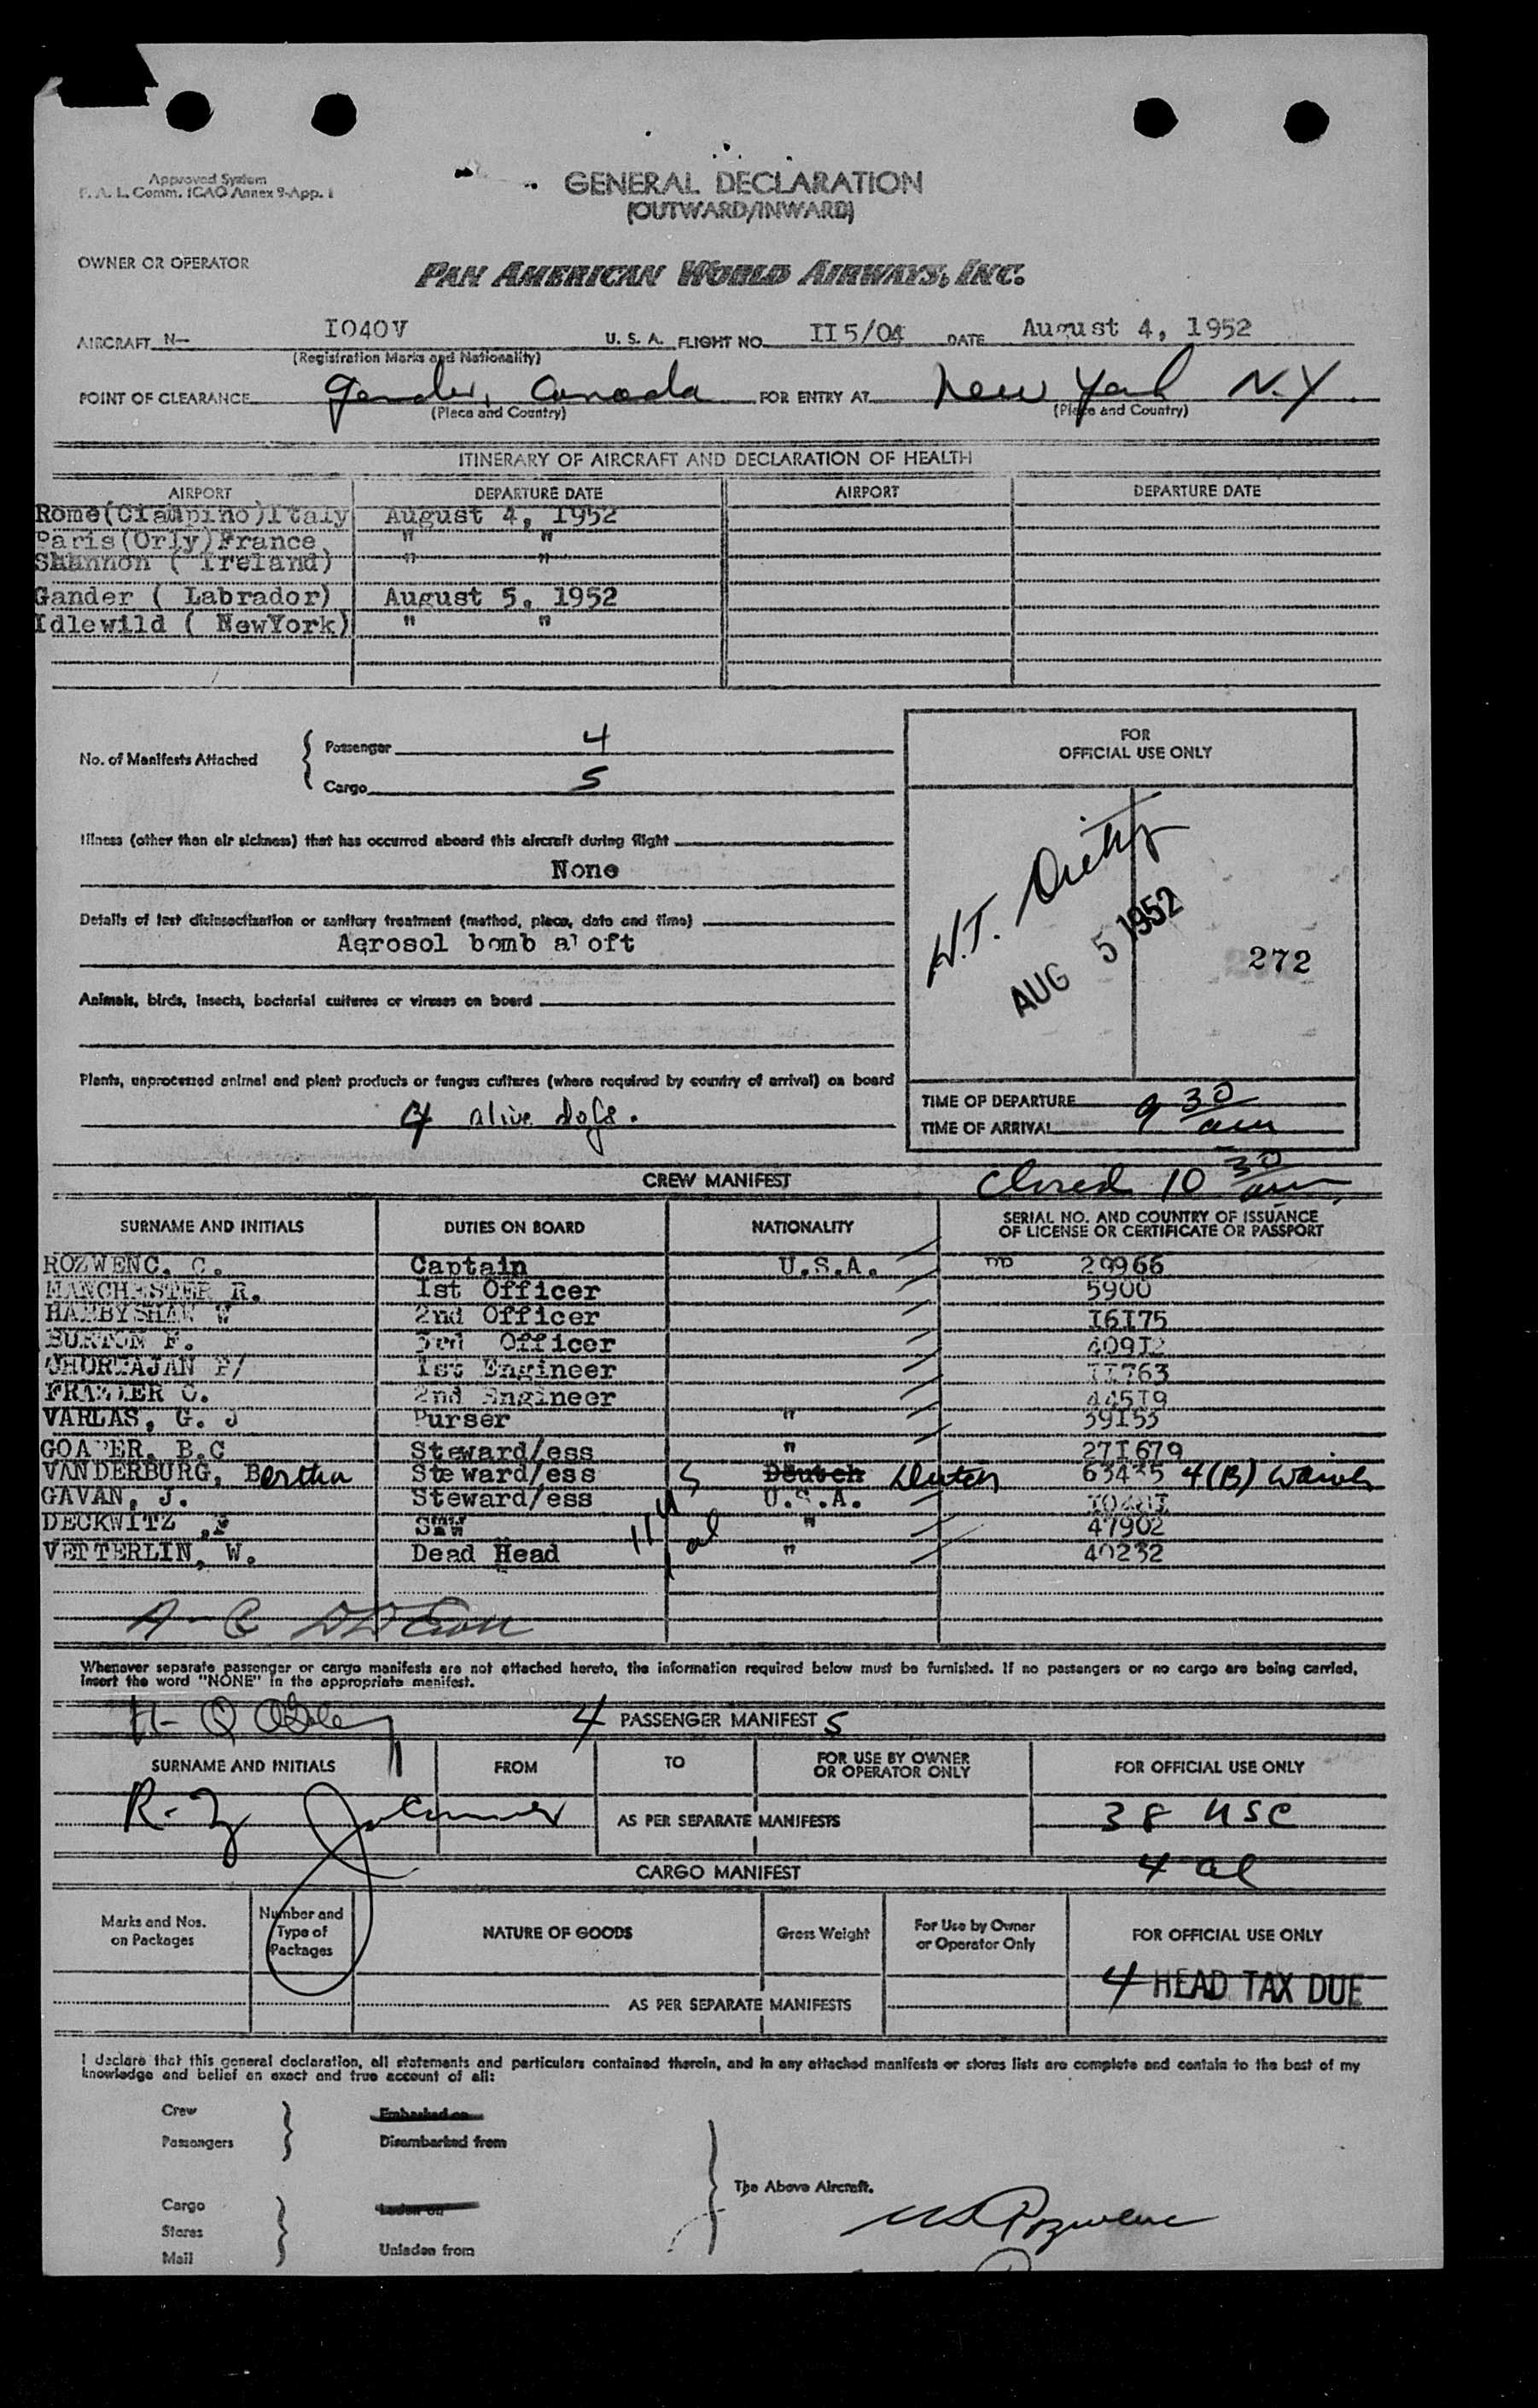 Approved System
F. A. L. Comm. ICAO Annex 9-App. 1
GENERAL DECLARATION
(OUTWARD/INWARD)
OWNER OR OPERATOR
PAN AMERICAN WORLD AIRWAYS, INC.
AIRCRAFT N- I040V U. S. A. FLIGHT NO. II5/04 DATE August 4, 1952
(Registration Marks and Nationality)
POINT OF CLEARANCE Gander, Canada FOR ENTRY AT New York N.Y.
(Place and Country) (Place and Country)
ITINERARY OF AIRCRAFT AND DECLARATION OF HEALTH
AIRPORT DEPARTURE DATE AIRPORT DEPARTURE DATE
Rome(Ciampino)Italy August 4, 1952
Paris(Orly)France " "
Shannon ( Ireland) " "
Gander ( Labrador) August 5, 1952
Idlewild ( NewYork) " "
No. of Manifests Attached
Passenger 4
Cargo 5
FOR
OFFICIAL USE ONLY
Illness (other than air sickness) that has occurred aboard this aircraft during flight
None
Details of last disinsectization or sanitary treatment (method, place, date and time)
Aerosol bomb aloft
W.T.
AUG 5 1952
272
Animals, birds, insects, bacterial cultures or viruses on board
Plants, unprocessed animal and plant products or fungus cultures (where required by country of arrival) on board
4 alive dogs.
TIME OF DEPARTURE
TIME OF ARRIVAL 9 30 am
Closed 10 30 am
CREW MANIFEST
SURNAME AND INITIALS DUTIES ON BOARD NATIONALITY SERIAL NO. AND COUNTRY OF ISSUANCE
OF LICENSE OR CERTIFICATE OR PASSPORT
ROZWENC, C. Captain U.S.A. 29966
MANCHESTER R. 1st Officer 5900
HAMBYSHAW W 2nd Officer I6I75
BURTON F. 3rd Officer 409I2
1st Engineer II763
FRAZIER C. 2nd Engineer 445I9
VARLAS, G. J Purser " 39I53
B.C Steward/ess " 27I679
VANDERBURG, Bertha Steward/ess Deutch Dutch 63435 4(B)
GAVAN, J. Steward/ess U.S.A.
DECKWITZ ,F " 47902
VETTERLIN, W. Dead Head " 40232
Whenever separate passenger or cargo manifests are not attached hereto, the information required below must be furnished. If no passengers or no cargo are being carried,
insert the word "NONE" in the appropriate manifest.
4 PASSENGER MANIFEST 5
SURNAME AND INITIALS FROM TO FOR USE BY OWNER
OR OPERATOR ONLY FOR OFFICIAL USE ONLY
AS PER SEPARATE MANIFESTS 38 USC
4 al
CARGO MANIFEST
Marks and Nos.
on Packages Number and
Type of
Packages NATURE OF GOODS Gross Weight For Use by Owner
or Operator Only FOR OFFICIAL USE ONLY
4 HEAD TAX DUE
AS PER SEPARATE MANIFESTS
I declare that this general declaration, all statements and particulars contained therein, and in any attached manifests or stores lists are complete and contain to the best of my
knowledge and belief an exact and true account of all:
Crew Embarked on
Passengers Disembarked from
The Above Aircraft.
Cargo Laden on
Stores
Mail Unladen from